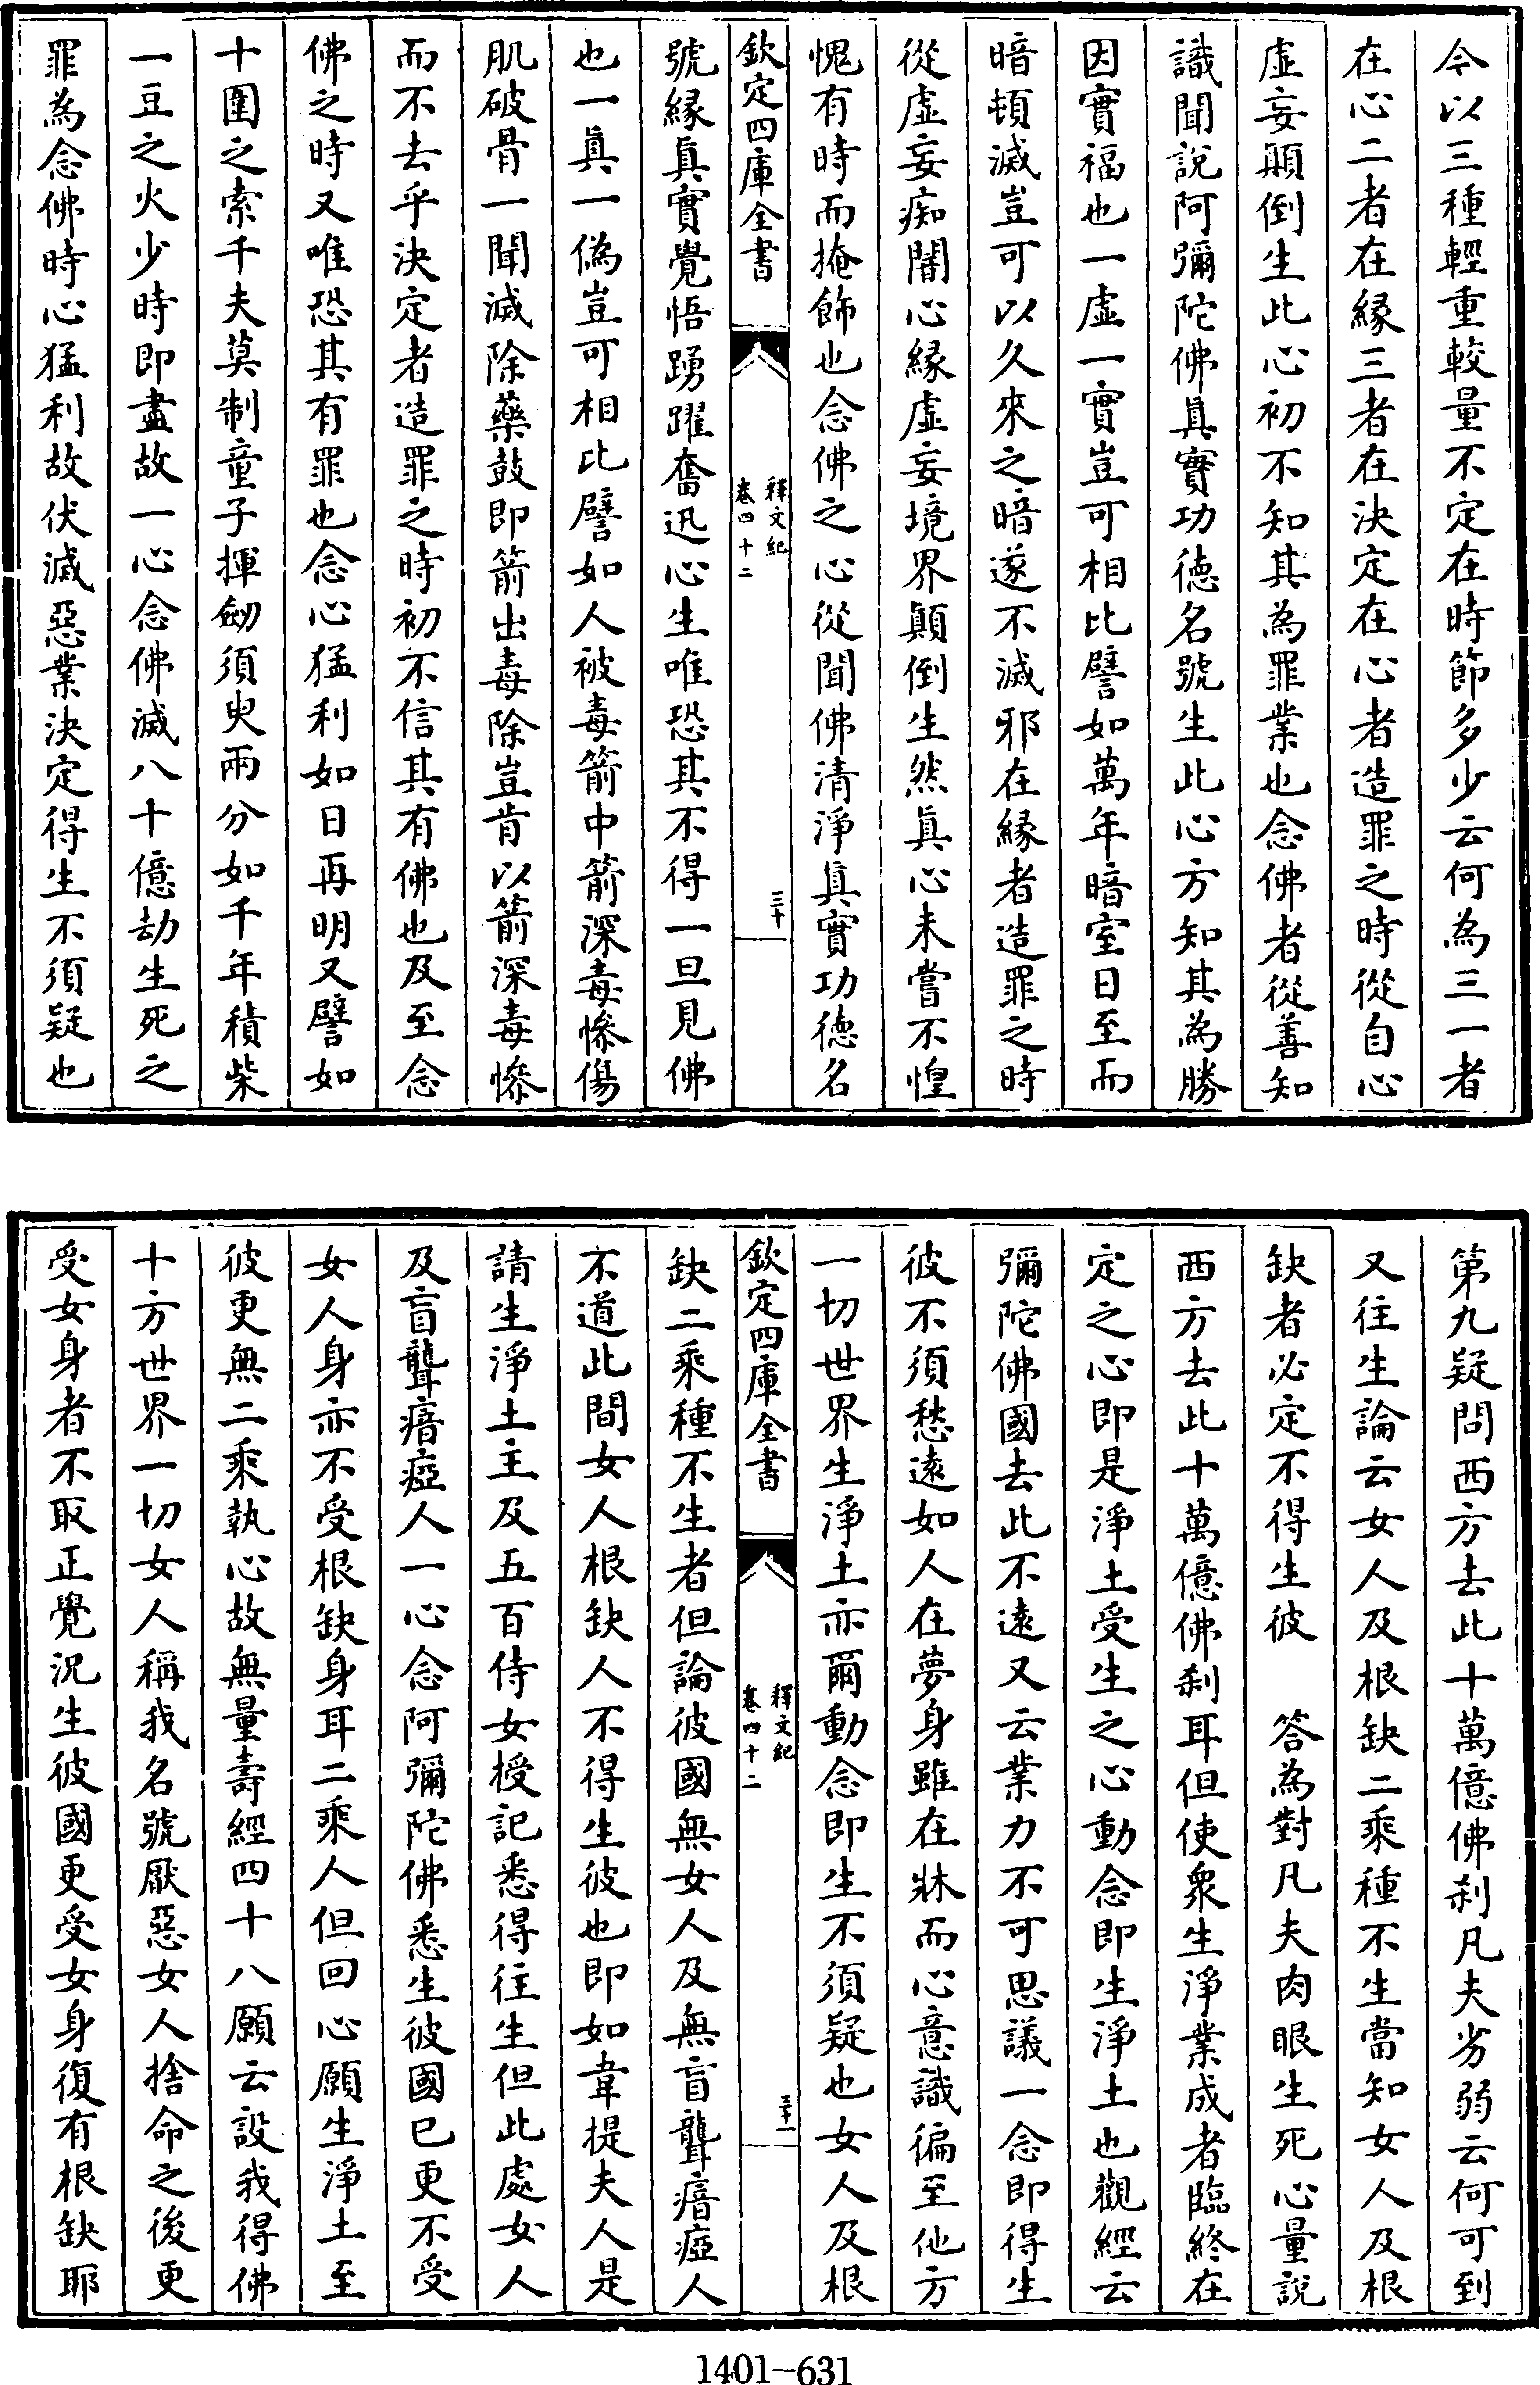 今以三種輕重較量不定在時節多少云何為三一者
在心二者在緣三者在決定在心者造罪之時從自心
虛妄顛倒生此心初不知其為罪業也念佛者從善知
識聞說阿彌陀佛真實功德名號生此心方知其為勝
因實福也一虛一實豈可相比譬如萬年暗室日至而
暗頓滅豈可以久來之暗遂不滅邪在緣者造罪之時
從虛妄痴闇心緣虛妄境界顛倒生然真心未嘗不惶
愧有時而掩飾也念佛之心從聞佛清淨真實功德名
欽定四庫全書
釋文紀
卷四十二
三十
號緣真實覺悟踴躍奮迅心生唯恐其不得一旦見佛
也一真一偽豈可相比譬如人被毒箭中箭深毒慘傷
肌破骨一聞滅除藥鼓即箭出毒除豈肯以箭深毒慘
而不去乎決定者造罪之時初不信其有佛也及至念
佛之時又唯恐其有罪也念心猛利如日再明又譬如
十圍之索千夫莫制童子揮劒須臾兩分如千年積柴
一豆之火少時即盡故一心念佛滅八十億劫生死之
罪為念佛時心猛利故伏滅惡業決定得生不須疑也
第九疑問西方去此十萬億佛刹凡夫劣弱云何可到
又往生論云女人及根缺二乘種不生當知女人及根
缺者必定不得生彼　答為對凡夫肉眼生死心量說
西方去此十萬億佛刹耳但使衆生淨業成者臨終在
定之心即是淨土受生之心動念即生淨土也觀經云
彌陀佛國去此不遠又云業力不可思議一念即得生
彼不須愁遠如人在夢身雖在牀而心意識徧至他方
一切世界生淨土亦爾動念即生不須疑也女人及根
欽定四庫全書
釋文紀
卷四十二
三十一
缺二乘種不生者但論彼國無女人及無盲聾瘖瘂人
不道此間女人根缺人不得生彼也即如韋提夫人是
請生淨土主及五百侍女授記悉得往生但此處女人
及盲聾瘖瘂人一心念阿彌陀佛悉生彼國已更不受
女人身亦不受根缺身耳二乘人但回心願生淨土至
彼更無二乘執心故無量壽經四十八願云設我得佛
十方世界一切女人稱我名號厭惡女人捨命之後更
受女身者不取正覺況生彼國更受女身復有根缺耶
1401-631